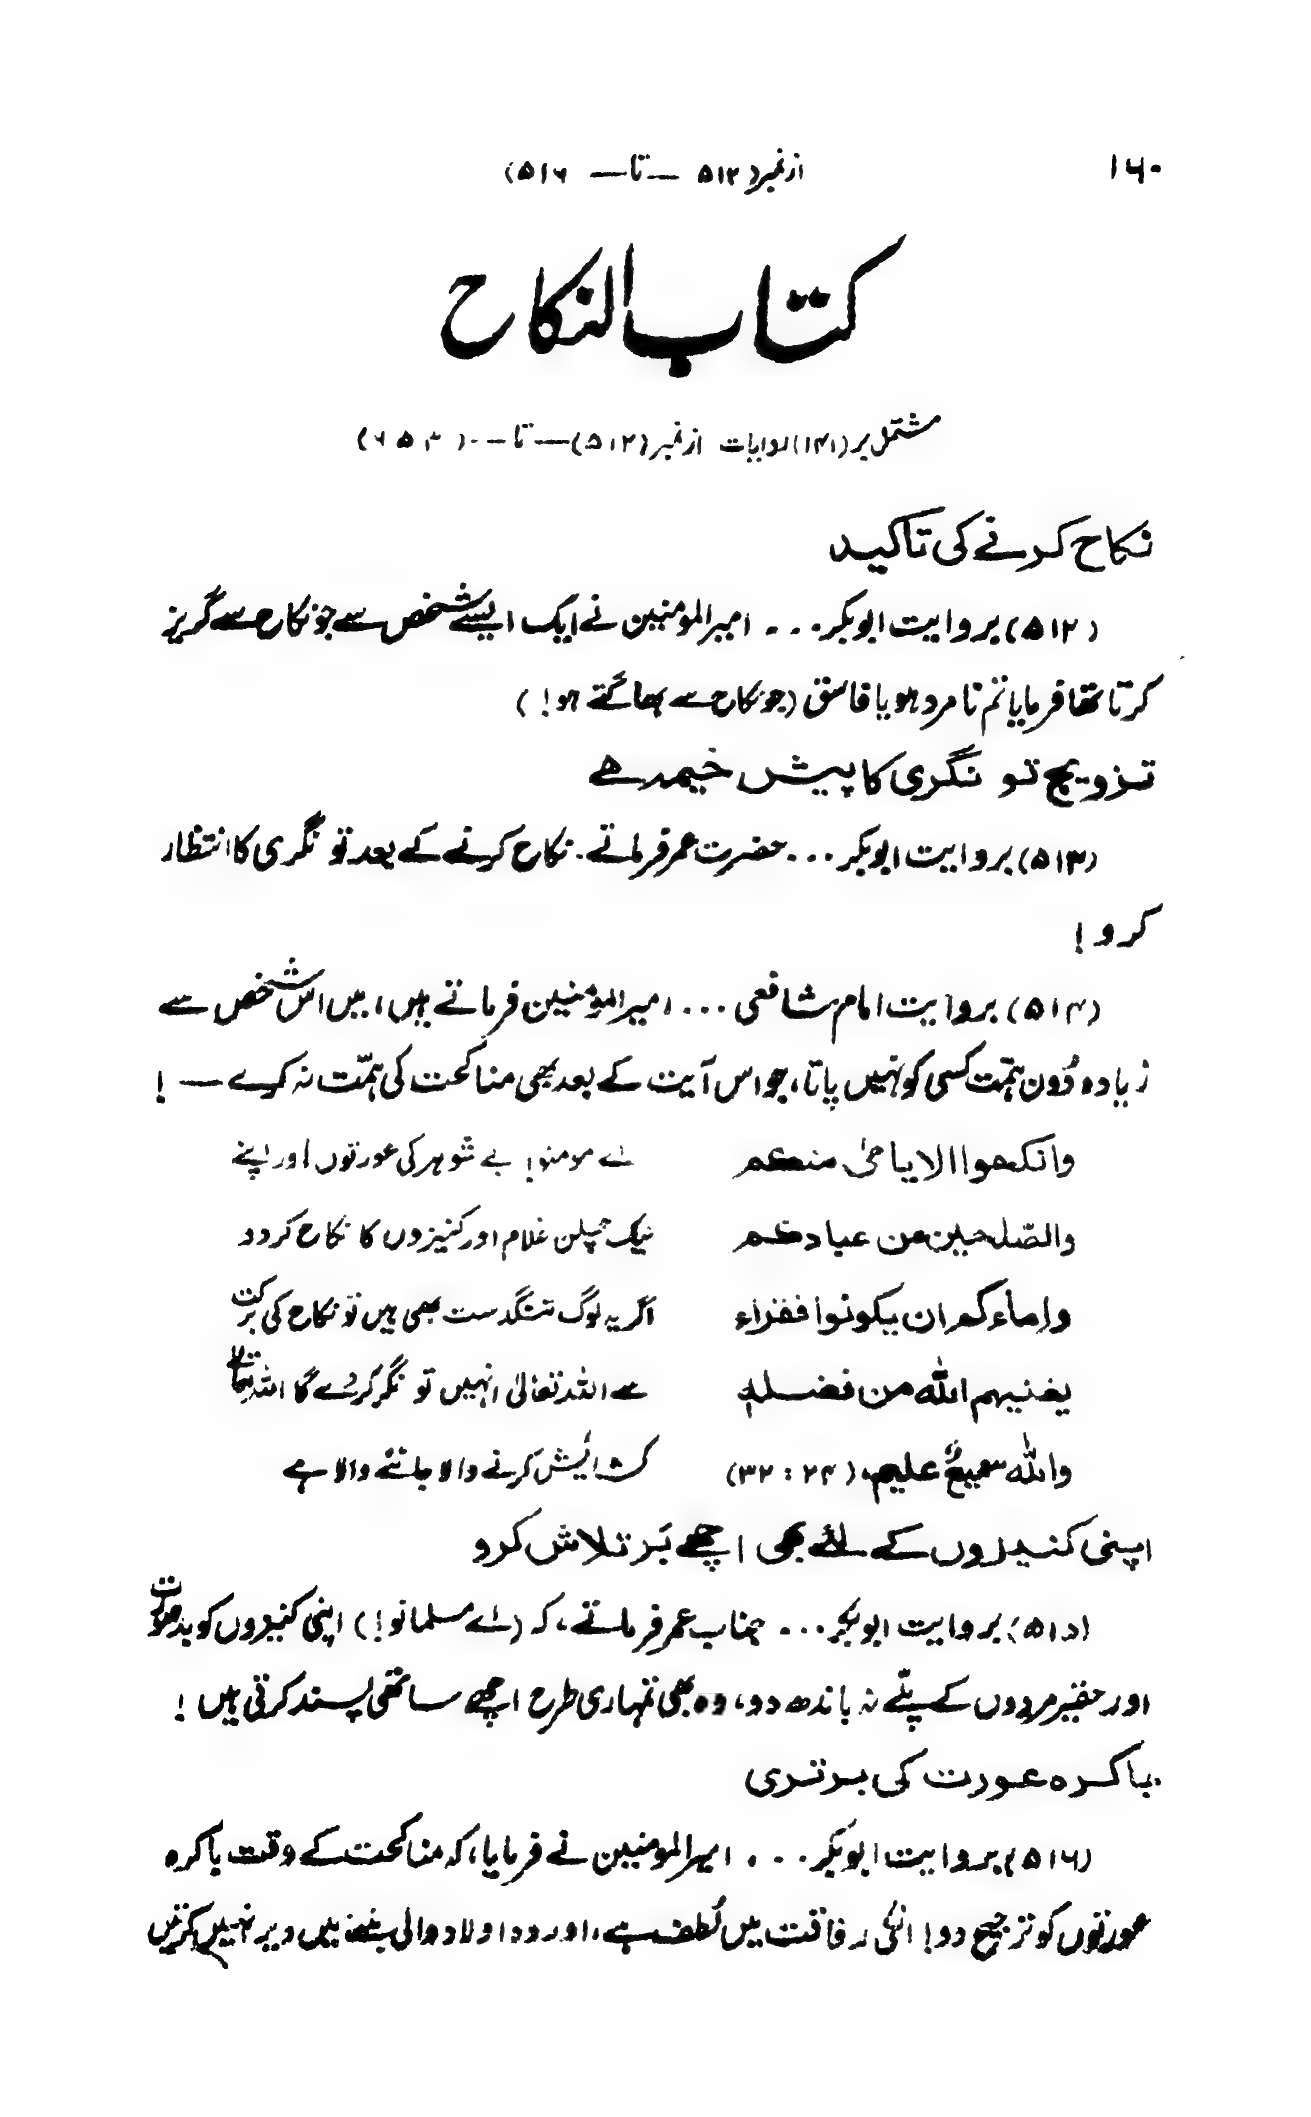 ۱۶۰
از نمبر (۵۱۲ — تا — ۵۱۶)
کتاب النکاح
مشتمل بر (۱۴۱) روایات از نمبر (۵۱۲) — تا — (۶۵۳)
نکاح کرنے کی تاکید
(۵۱۲) بروایت ابوبکر ... امیرالمومنین نے ایک ایسے شخص سے جو نکاح سے گریز
کرتا تھا فرمایا تم نامرد ہو یا فاسق (جو نکاح سے بھاگتے ہو!)
تزویج تو نگری کا پیش خیمہ ہے
(۵۱۳) بروایت ابوبکر ... حضرت عمر فرماتے۔ نکاح کرنے کے بعد تو نگری کا انتظار
کرو!
(۵۱۴) بروایت امام شافعی ... امیرالمومنین فرماتے ہیں، میں اس شخص سے
زیادہ دُون ہمّت کسی کو نہیں پاتا، جو اس آیت کے بعد بھی مناکحت کی ہمّت نہ کرے — !
وانکحوا الایامیٰ منکم
اے مومنو! بے شوہر کی عورتوں اور اپنے
والصّلحین من عبادکم
نیک چلن غلام اور کنیزوں کا نکاح کر دو
وإمائکم ان یکونوا فقراء
اگر یہ لوگ تنگدست بھی ہیں تو نکاح کی برکت
یغنیہم اللہ من فضلہ
سے اللہ تعالیٰ انہیں تو نگر کر دے گا اللہ تعالیٰ
واللہ سمیعٌ علیم، (۲۴ : ۳۲)
کشایش کرنے والا جاننے والا ہے
اپنی کنیزوں کے لئے بھی اچھے بَر تلاش کرو
(۵۱۵) بروایت ابوبکر ... جناب عمر فرماتے، کہ (اے مسلمانو!) اپنی کنیزوں کو بدصورت
اور حقیر مردوں کے پلّے نہ باندھ دو، وہ بھی تمہاری طرح اچھے ساتھی پسند کرتی ہیں !
باکرہ عورت کی برتری
(۵۱۶) بروایت ابوبکر ... امیرالمومنین نے فرمایا، کہ مناکحت کے وقت باکرہ
عورتوں کو ترجیح دو! انکی رفاقت میں لُطف ہے، اور وہ اولاد والی بننے میں دیر نہیں کرتیں